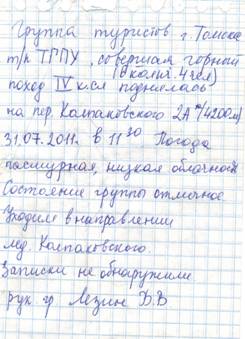 Группа туристов г. Томска
т/к ТРПУ, совершая горный
(в колич. 4 чел)
поход IV к.сл поднялась
на пер. Колпаковского 2А* (4200м)
31.07.2011г. в 11 30 Погода
пасмурная, низкая облачность
Состояние группы отличное
Уходим в направлении
лед. Колпаковского.
Записки не обнаружили
рук. гр Лезин